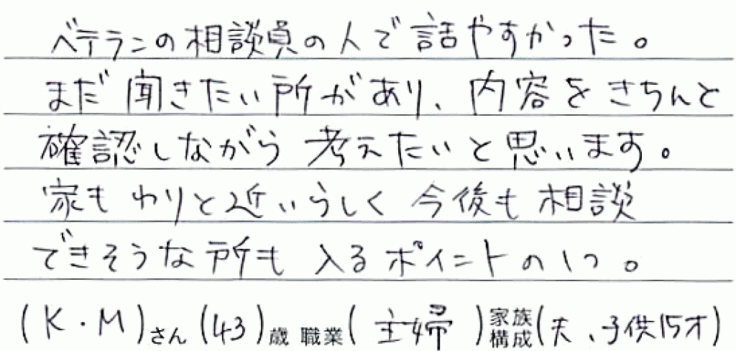 ベテランの相談員の人で話やすかった。
まだ聞きたい所があり、内容をきちんと
確認しながら考えたいと思います。
家もわりと近いらしく今後も相談
できそうな所も入るポイントの1つ。
(K・M)さん(43)歳 職業(主婦)家族構成(夫、子供15才)